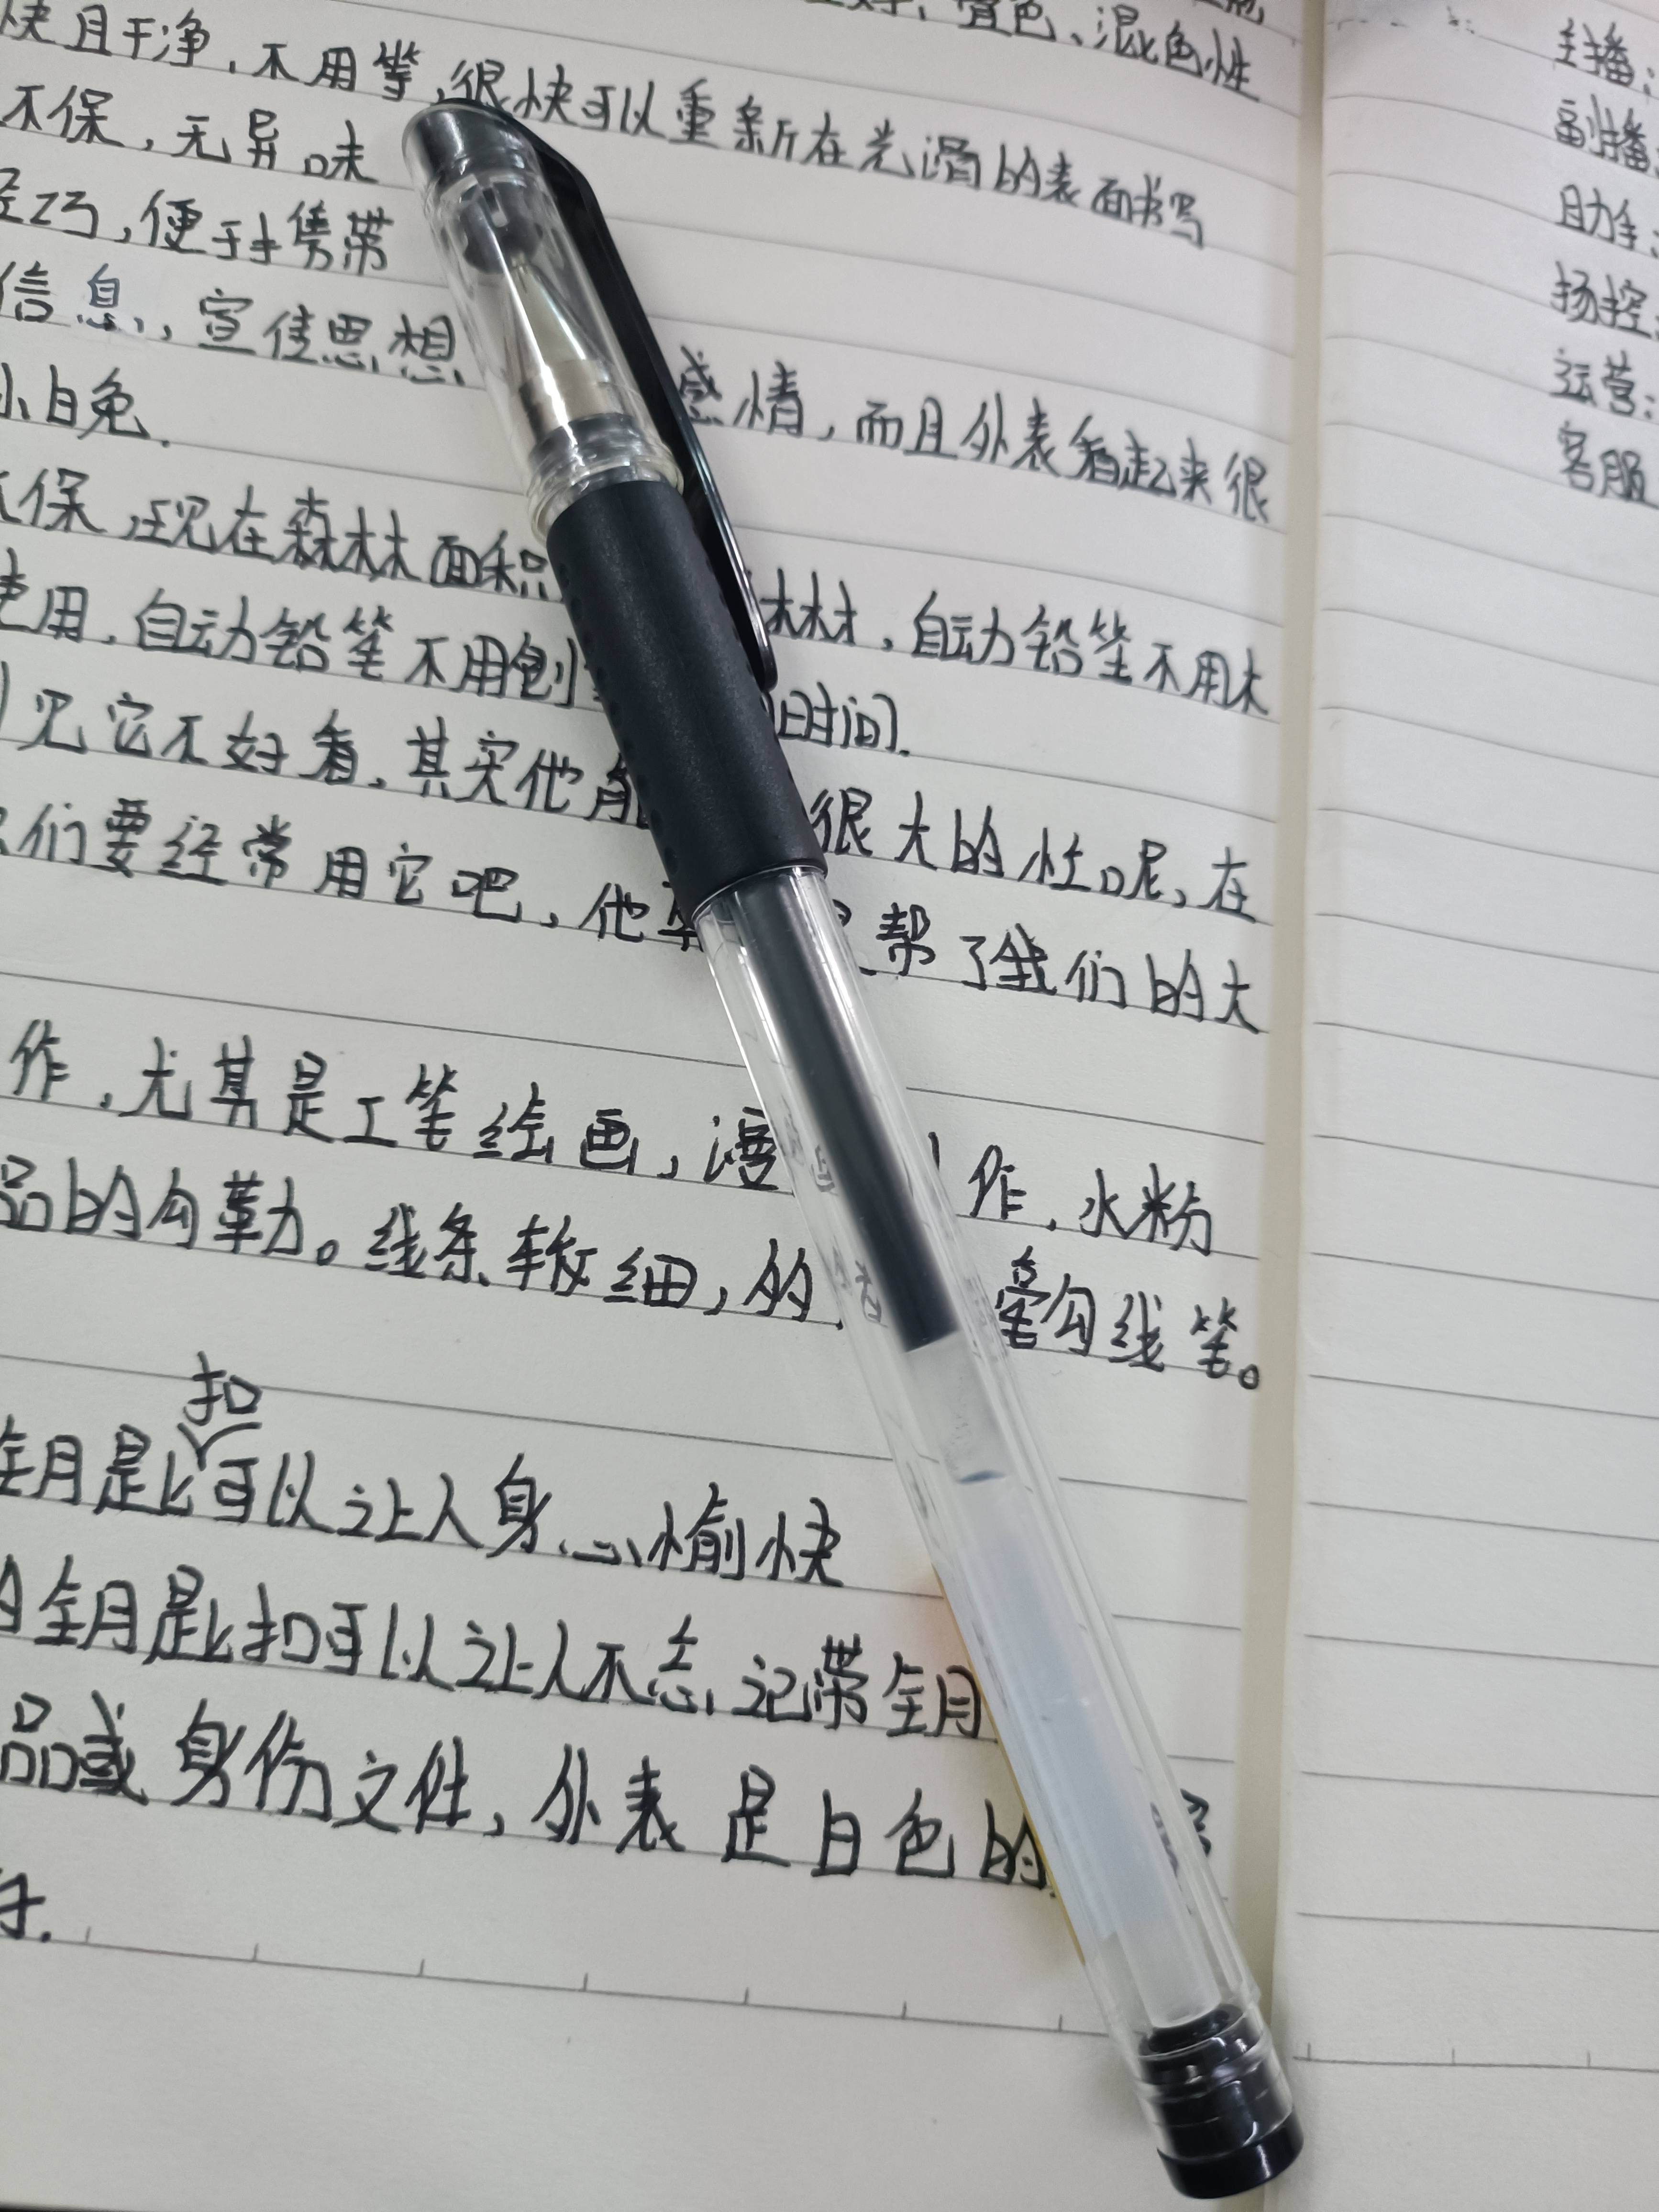 色、混色性
快且干净，不用等，很快可以重新在光滑的表面书写
不保，无异味
轻巧，便于携带
信息，宣传思想 感情，而且外表看起来很
小白兔.
保，现在森林面积 林，自动铅笔不用木
使用，自动铅笔不用刨 时间.
见它不好看，其实他 很大的 呢，在
们要经常用它吧，他 帮了我们的大
作，尤其是工笔绘画，漫 作，水粉
品的勾勒。线条较细，的 毫勾线笔。
扣
钥匙可以让人身心愉快
的钥匙扣可以让人不忘记带钥
品或身份文件，外表是白色的
主播：
副播：
助手：
场控：
运营：
客服